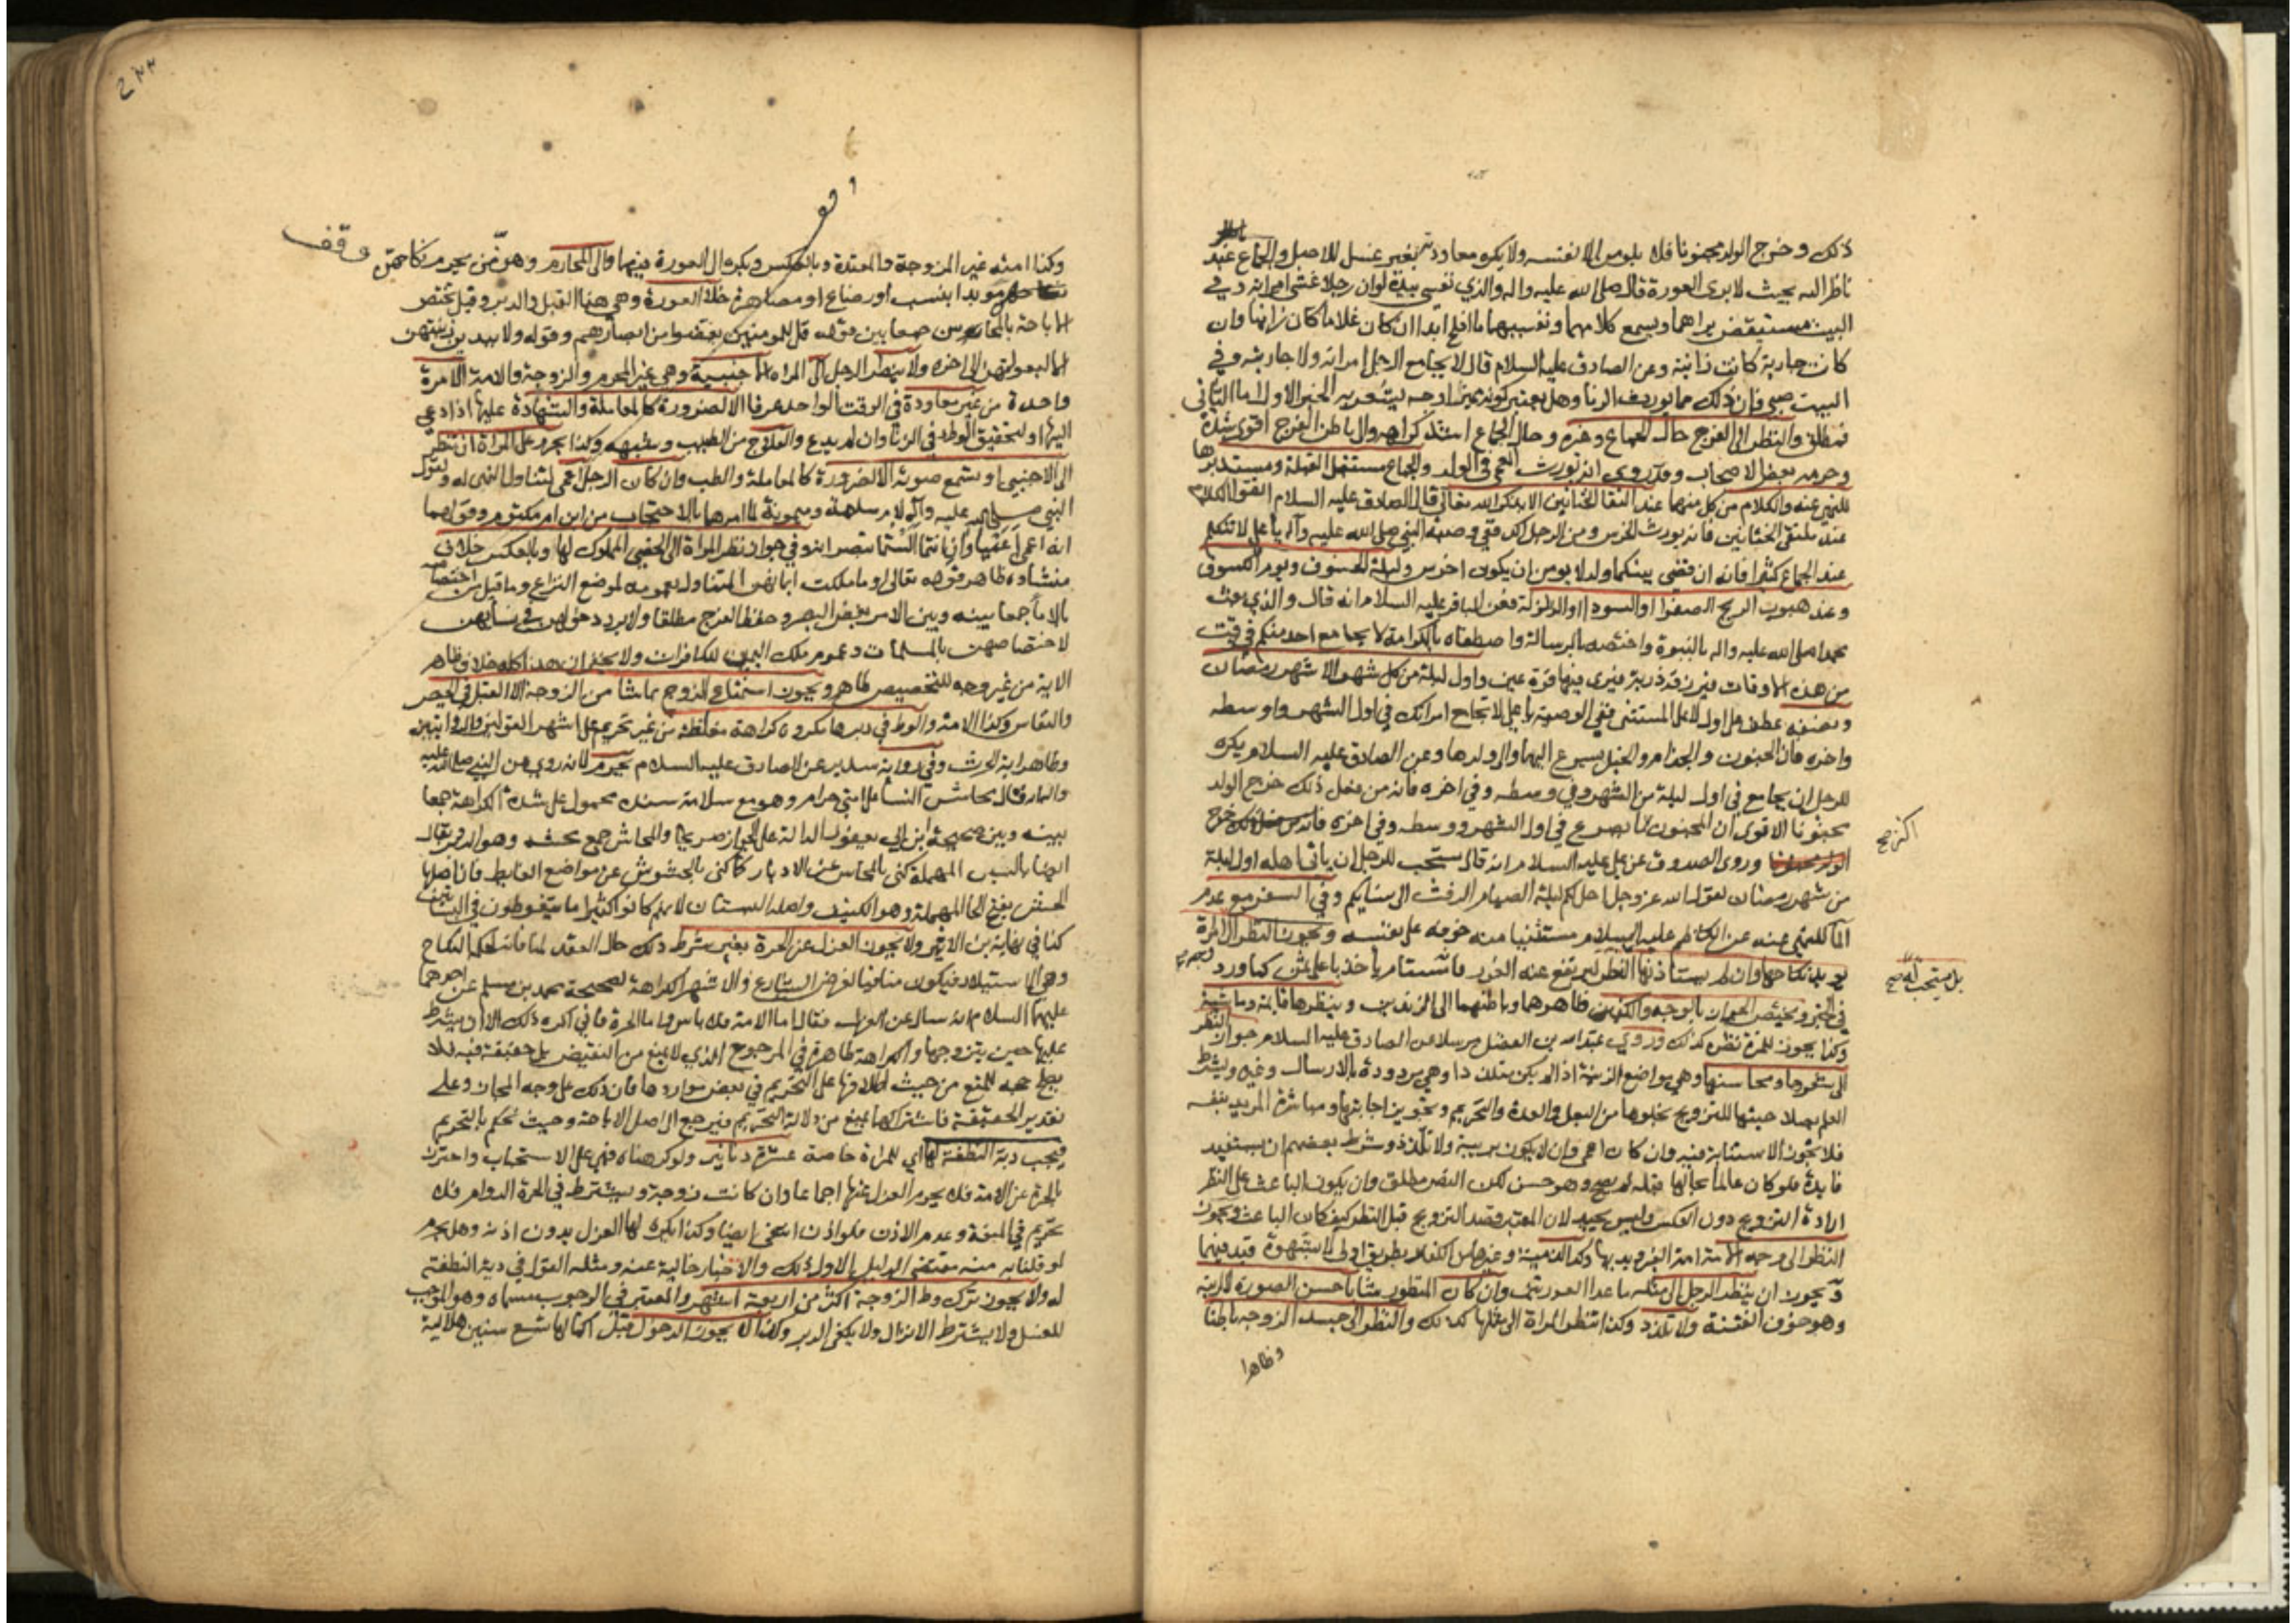 ذلك وخرج الولد مجنونا فلا يلومن الا نفسه ولا يكره معاودته بغير غسل للاصل والجماع عند
ناظر اليه بحيث لا يرى العورة قال صلى الله عليه واله والذي نفسي بيده لو ان رجلا غشى امراته وفي
البيت مستيقظ يراهما ويسمع كلامهما ونفسهما ما افلح ابدا ان كان غلاما كان زانيا وان
كانت جارية كانت زانية وعن الصادق عليه السلام قال لا يجامع الرجل امراته ولا جاريته وفي
البيت صبي فان ذلك مما يورث الزنا وهل يعتبر كونه مميزا وجه يشعر به الخبر الاول واما الثاني
فمطلق والنظر الى الفرج حال الجماع وغيره وحال الجماع اشد كراهة والى باطن الفرج اقوى شدة
وحرمه بعض الاصحاب وقد روي انه يورث العمى في الولد والجماع مستقبل القبلة ومستدبرها
للنهي عنه والكلام من كل منهما عند التقاء الختانين الا بذكر الله تعالى قال الصادق عليه السلام اتقوا الكلام
عند ملتقى الختانين فانه يورث الخرس ومن الرجل اكد ففي وصية النبي صلى الله عليه وآله يا علي لا تتكلم
عند الجماع كثيرا فانه ان قضي بينكما ولد لا يومن ان يكون اخرس وليلة الخسوف ويوم الكسوف
وعند هبوب الريح الصفرا او السودا او الزلزلة فعن الباقر عليه السلام انه قال والذي بعث
محمدا صلى الله عليه واله بالنبوة واختصه بالرسالة واصطفاه بالكرامة لا يجامع احد منكم في وقت
من هذه الاوقات فيرزق ذرية فيرى فيها قرة عين واول ليلة من كل شهر الا شهر رمضان
ونصفه عطف على اول لا على المستثنى ففي الوصية يا علي لا تجامع امراتك في اول الشهر واوسطه
واخره فان الجنون والجذام والخبل يسرع اليها والى ولدها وعن الصادق عليه السلام يكره
للرجل ان يجامع في اول ليلة من الشهر وفي وسطه وفي اخره فانه من فعل ذلك خرج الولد
مجنونا الا ترى ان المجنون اكثر ما يصرع في اول الشهر ووسطه وفي اخره
وروى الصدوق عن علي عليه السلام انه قال يستحب للرجل ان ياتي اهله اول ليلة
من شهر رمضان لقول الله عز وجل احل لكم ليلة الصيام الرفث الى نسايكم وفي السفر مع عدم
الما للنهي عنه عن الكاظم عليه السلام مستثنيا منه خوفه على نفسه ويجوز النظر الى امراة
يريد نكاحها وان لم يستاذنها بل يستحب له النظر ليرتفع عنه الغرر فانه مستام ياخذ باغلى ثمن كما ورد
في الخبر ويختص الجواز بالوجه والكفين ظاهرهما وباطنهما الى الزندين وينظرها قايمة وماشية
وكذا يجوز للمراة نظره كذلك وروي عبد الله بن الفضل مرسلا عن الصادق عليه السلام جواز النظر
الى شعرها ومحاسنها وهي مواضع الزينة اذا لم يكن متلذذا وهي مردودة بالارسال وغيره ويشترط
العلم بصلاحيتها للتزويج بخلوها من البعل والعدة والتحريم وتجويز اجابتها ومباشرة المريد بنفسه
فلا تجوز الاستنابة فيه وان كان اعمى وان لا يكون بريبة ولا تلذذ وشرط بعضهم ان يستفيد
فايدة فلو كان عالما بحالها قبله لم يصح وهو حسن لكن النص مطلق وان يكون الباعث على النظر
ارادة التزويج دون العكس وليس بجيد لان المعتبر قصد التزويج قبل النظر كيف كان الباعث ويجوز
النظر الى وجه الامة امة الغير ويديها وكذا الذمية وغيرها من الكفار بطريق اولى لا بشهوة قيد فيهما
ويجوز ان ينظر الرجل الى مثله ما عدا العورتين وان كان المنظور شابا حسن الصورة لا لريبة
وهو خوف الفتنة ولا تلذذ وكذا تنظر المراة الى مثلها كذلك والنظر الى جسد الزوجة باطنا
وظاهرا
وقف
وكذا امته غير المزوجة والمعتدة وبالعكس ويكره الى العورة فيهما والى المحارم وهو من يحرم نكاحهن
موبدا بنسب او رضاع او مصاهرة خلا العورة وهي هنا القبل والدبر وقيل تختص
الاباحة بالمحاسن جمعا بين قوله قل للمومنين يغضوا من ابصارهم وقوله ولا يبدين زينتهن
الا لبعولتهن الى اخره ولا ينظر الرجل الى المراة الاجنبية وهي غير المحرم والزوجة والامة الا مرة
واحدة من غير معاودة في الوقت الواحد عرفا الا لضرورة كالمعاملة والشهادة عليها اذا دعي
اليها او لتحقيق الوطء في الزنا وان لم يدع والعلاج من الطبيب وشبهه وكذا يحرم على المراة ان تنظر
الى الاجنبي او تسمع صوته الا لضرورة كالمعاملة والطب وان كان الرجل اعمى لتناول النهي له ولقول
النبي صلى الله عليه وآله لام سلمة وميمونة لما امرهما بالاحتجاب من ابن ام مكتوم وقولهما
انه اعمى اعمياوان انتما الستما تبصرانه وفي جواز نظر المراة الى الخصي المملوك لها وبالعكس خلاف
منشاوه ظاهر قوله تعالى او ما ملكت ايمانهن المتناول بعمومه لموضع النزاع وما قيل من اختصاصه
بالاما جمعا بينه وبين الامر بغض البصر وحفظ الفرج مطلقا ولا يرد دخولهن في نسايهن
لاختصاصهن بالمسلمات وعموم ملك اليمين للكافرات ولا يخفى ان هذا كله خلاف ظاهر
الاية من غير وجه للتخصيص ظاهر ويجوز استمتاع الزوج بما شا من الزوجة الا القبل في الحيض
والنفاس وكذا الامة والوطء في دبرها مكروه كراهة مغلظة من غير تحريم على اشهر القولين والروايتين
وظاهر اية الحرث وفي رواية سدير عن الصادق عليه السلام يحرم لانه روي عن النبي صلى الله عليه
واله انه قال محاش النسا على امتي حرام وهو مع سلامة سنده محمول على شدة الكراهة جمعا
بينه وبين صحيحة ابن ابي يعفور الدالة على الجواز صريحا والمحاش جمع محشة وهو الدبر ويقال
ايضا بالسين المهملة كنى بالمحاش عن الادبار كما كنى بالحشوش عن مواضع الغايط فان اصلها
الحش بفتح الحا المهملة وهو الكنيف واصله البستان لانهم كانوا كثيرا ما يتغوطون في البساتين
كذا في نهاية ابن الاثير ولا يجوز العزل عن الحرة بغير شرط ذلك حال العقد لمنافاته لحكمة النكاح
وهي الاستيلاد فيكون منافيا لغرض الشارع والاشهر الكراهة لصحيحة محمد بن مسلم عن احدهما
عليهما السلام انه سال عن العزل فقال اما الامة فلا باس واما الحرة فاني اكره ذلك الا ان يشترط
عليها حين يتزوجها والكراهة ظاهرة في المرجوح الذي لا يمنع من النقيض بل حقيقة فيه فلا
يصلح حجة للمنع من حيث اطلاقها على التحريم في بعض مواردها فان ذلك على وجه المجاز وعلى
تقدير الحقيقة فاشتراكها يمنع من دلالة التحريم فيرجع الى اصل الاباحة وحيث يحكم بالتحريم
فيجب دية النطفة لها اي للمراة خاصة عشرة دنانير ولو كرهناه فهي على الاستحباب واحترز
بالحرة عن الامة فلا يحرم العزل عنها اجماعا وان كانت زوجة ويشترط في الحرة الدوام فلا
تحريم في المتعة وعدم الاذن فلو اذنت انتفى ايضا وكذا يكره لها العزل بدون اذنه وهل يحرم
لو قلنا به منه مقتضى الدليل الاول ذلك والاخبار خالية عنه ومثله القول في دية النطفة
له ولا يجوز ترك وطء الزوجة اكثر من اربعة اشهر والمعتبر في الوجوب مسماه وهو الموجب
للغسل ولا يشترط الانزال ولا يكفي الدبر وكذا لا يجوز الدخول قبل اكمالها تسع سنين هلالية